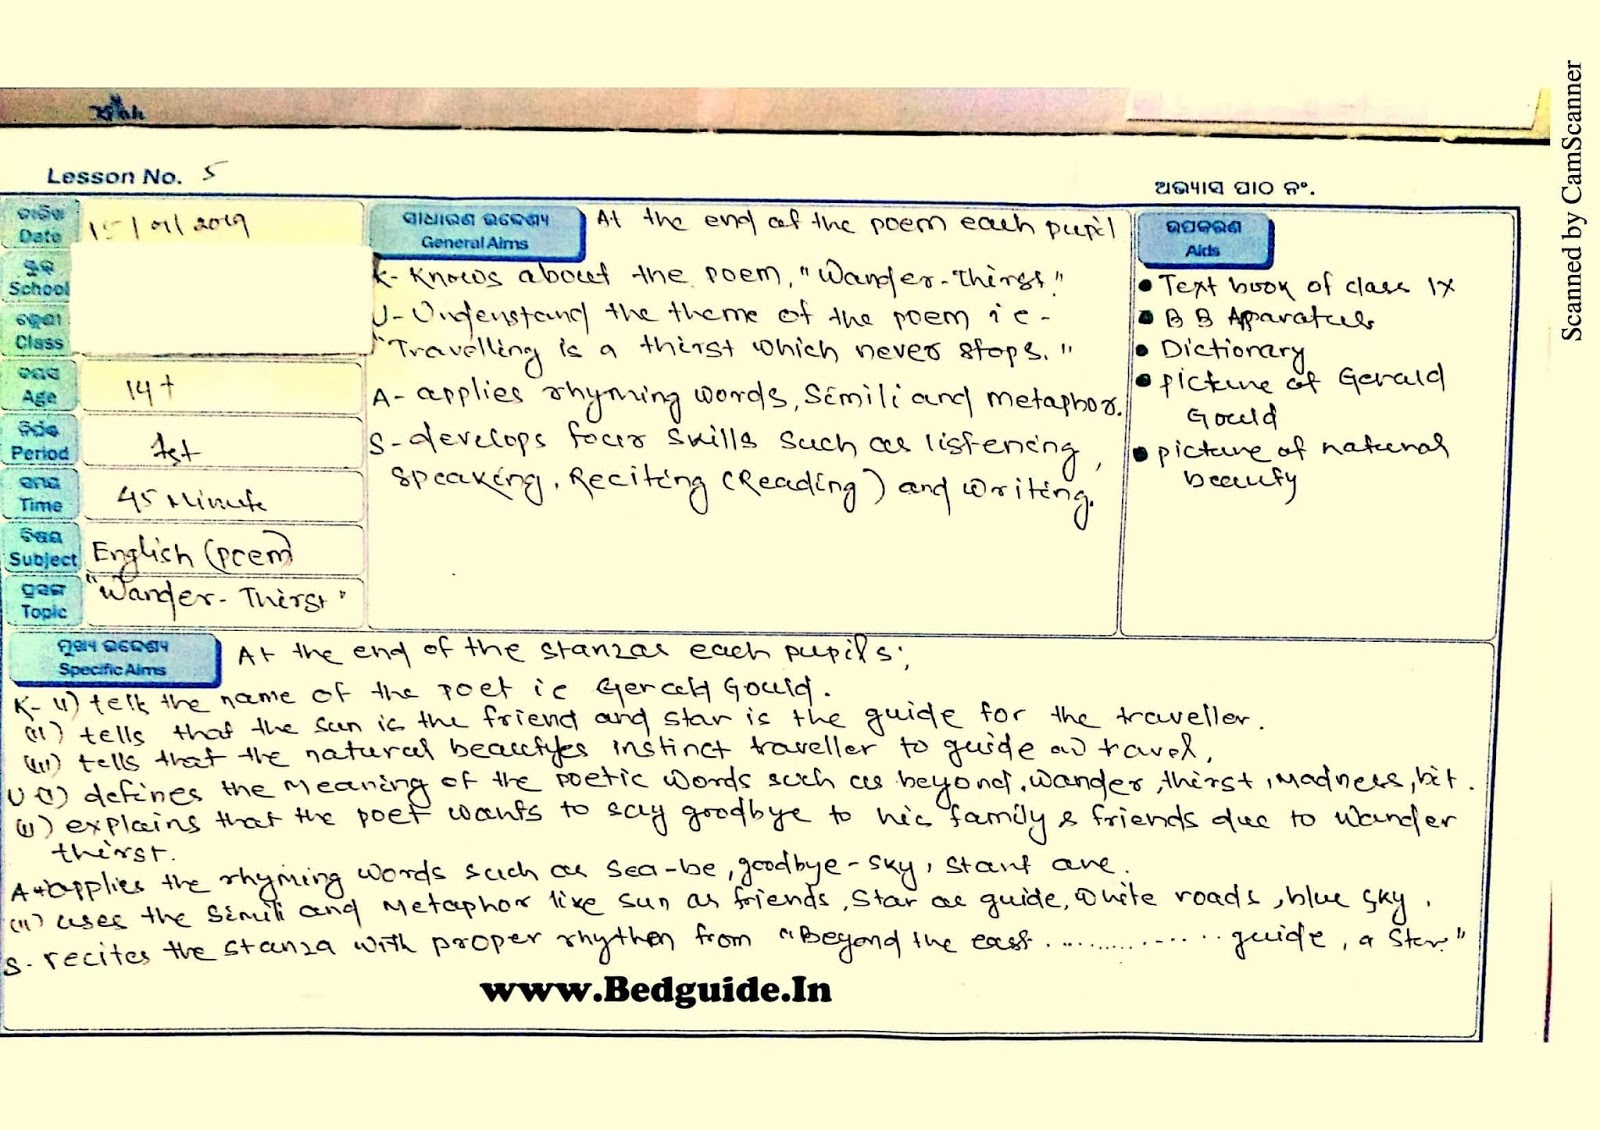 Lesson No. 5
ଅଭ୍ୟାସ ପାଠ ନଂ.
ତାରିଖ
Date 15/01/2019
ସ୍କୁଲ
School
ଶ୍ରେଣୀ
Class
ବୟସ
Age 14+
Period 1st
ସମୟ
Time 45 Minute
ବିଷୟ
Subject English (poem)
ପ୍ରସଙ୍ଗ
Topic "Wander-Thirst"
ସାଧାରଣ ଉଦ୍ଦେଶ୍ୟ
General Aims
At the end of the poem each pupil
K- Knows about the poem, "Wander-Thirst."
U- Understand the theme of the poem ie -
"Travelling is a thirst which never stops."
A- applies rhyming words, Simili and metaphor.
S- develops four skills such as listening,
Speaking, Reciting (Reading) and writing.
ଉପକରଣ
Aids
• Text book of class IX
• B B Apparatus
• Dictionary
• picture of Gerald
Gould
• picture of natural
beauty
ମୁଖ୍ୟ ଉଦ୍ଦେଶ୍ୟ
Specific Aims
At the end of the stanzas each pupils;
K- i) tells the name of the poet ie Gerald Gould.
(ii) tells that the sun is the friend and star is the guide for the traveller.
(iii) tells that the natural beautyes instinct traveller to guide travel.
U (i) defines the meaning of the poetic words such as beyond, wander, thirst, madness, bit.
(ii) explains that the poet wants to say goodbye to his family & friends due to wander
thirst.
A applies the rhyming words such as sea-be, goodbye-sky, are.
(ii) uses the Simili and Metaphor like sun as friends, star as guide, white roads, blue sky.
S- recites the stanza with proper rhythm from "Beyond the east ............ guide, a star"
www.Bedguide.In
Scanned by CamScanner